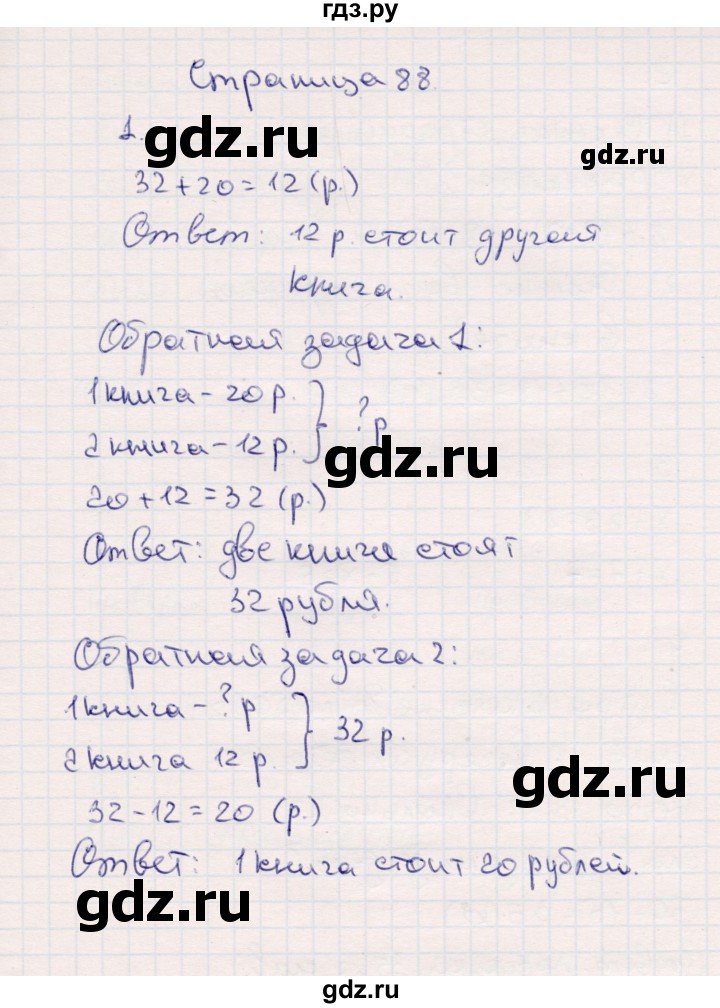 гдз.ру
Страница 88.
1.
gdz.ru
gdz.ru
32+20=12 (р.)
Ответ: 12 р. стоит другая
книга.
Обратная задача 1:
1 книга - 20 р.
2 книга - 12 р.
? р
gdz.ru
20+12=32 (р.)
Ответ: две книги стоят
32 рубля.
Обратная задача 2:
1 книга - ? р
2 книга 12 р.
32 р.
gdz.ru
32-12=20 (р.)
Ответ: 1 книга стоит 20 рублей.
gdz.ru
gdz.ru